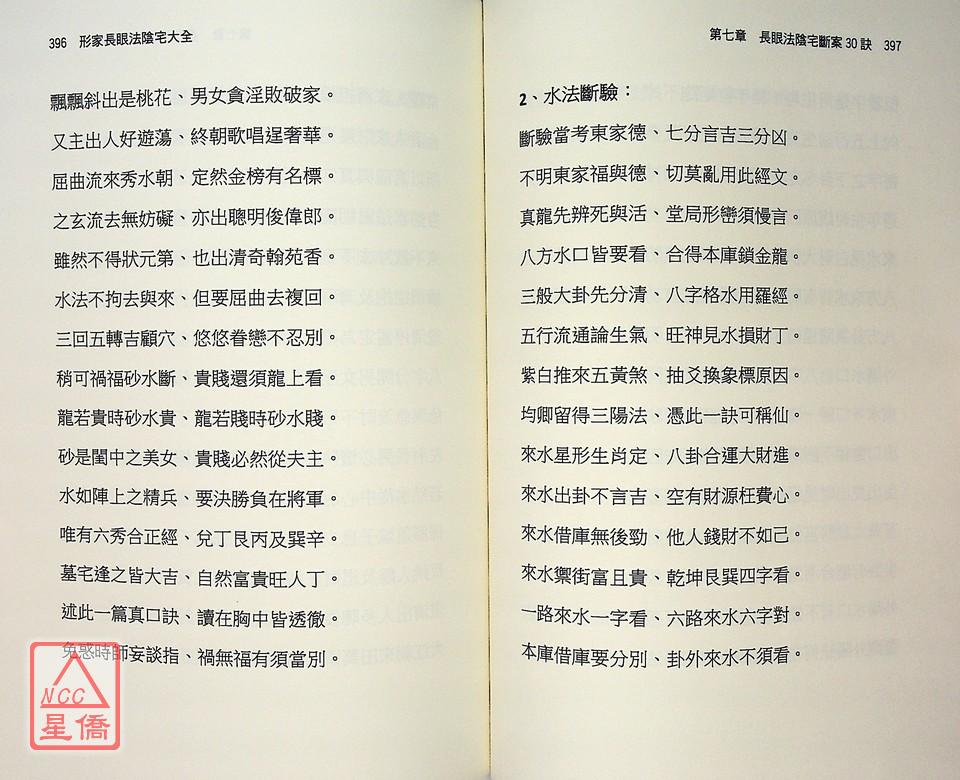 396 形家長眼法陰宅大全
飄飄斜出是桃花、男女貪淫敗破家。
又主出人好遊蕩、終朝歌唱逞奢華。
屈曲流來秀水朝、定然金榜有名標。
之玄流去無妨礙、亦出聰明俊偉郎。
雖然不得狀元第、也出清奇翰苑香。
水法不拘去與來、但要屈曲去複回。
三回五轉吉顧穴、悠悠眷戀不忍別。
稍可禍福砂水斷、貴賤還須龍上看。
龍若貴時砂水貴、龍若賤時砂水賤。
砂是闈中之美女、貴賤必然從夫主。
水如陣上之精兵、要決勝負在將軍。
唯有六秀合正經、兌丁艮丙及巽辛。
墓宅逢之皆大吉、自然富貴旺人丁。
述此一篇真口訣、讀在胸中皆透徹。
免惑時師妄談指、禍無福有須當別。
NCC
星僑
第七章 長眼法陰宅斷案30訣 397
2、水法斷驗：
斷驗當考東家德、七分言吉三分凶。
不明東家福與德、切莫亂用此經文。
真龍先辨死與活、堂局形巒須慢言。
八方水口皆要看、合得本庫鎖金龍。
三般大卦先分清、八字格水用羅經。
五行流通論生氣、旺神見水損財丁。
紫白推來五黃煞、抽爻換象標原因。
均卿留得三陽法、憑此一訣可稱仙。
來水星形生肖定、八卦合運大財進。
來水出卦不言吉、空有財源枉費心。
來水借庫無後勁、他人錢財不如己。
來水禦街富且貴、乾坤艮巽四字看。
一路來水一字看、六路來水六字對。
本庫借庫要分別、卦外來水不須看。